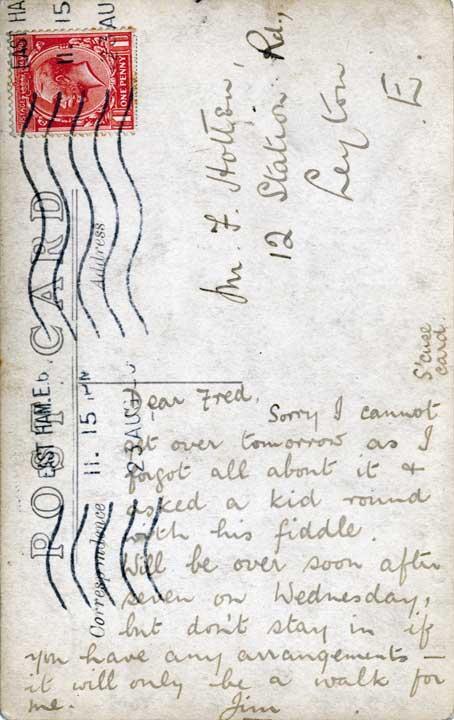 POST CARD
Correspondence
Address
ONE PENNY
EAST HA
15
AU
EAST HAM. E.6.
11. 15
23 AUG
Mr. F.
12 Station Rd.,
Leyton
E.
S'cuse
card.
Dear Fred,
Sorry I cannot
get over tomorrow as I
forgot all about it &
asked a kid round
with his fiddle.
Will be over soon after
seven on Wednesday,
but don't stay in if
you have any arrangements –
it will only be a walk for
me. Jim